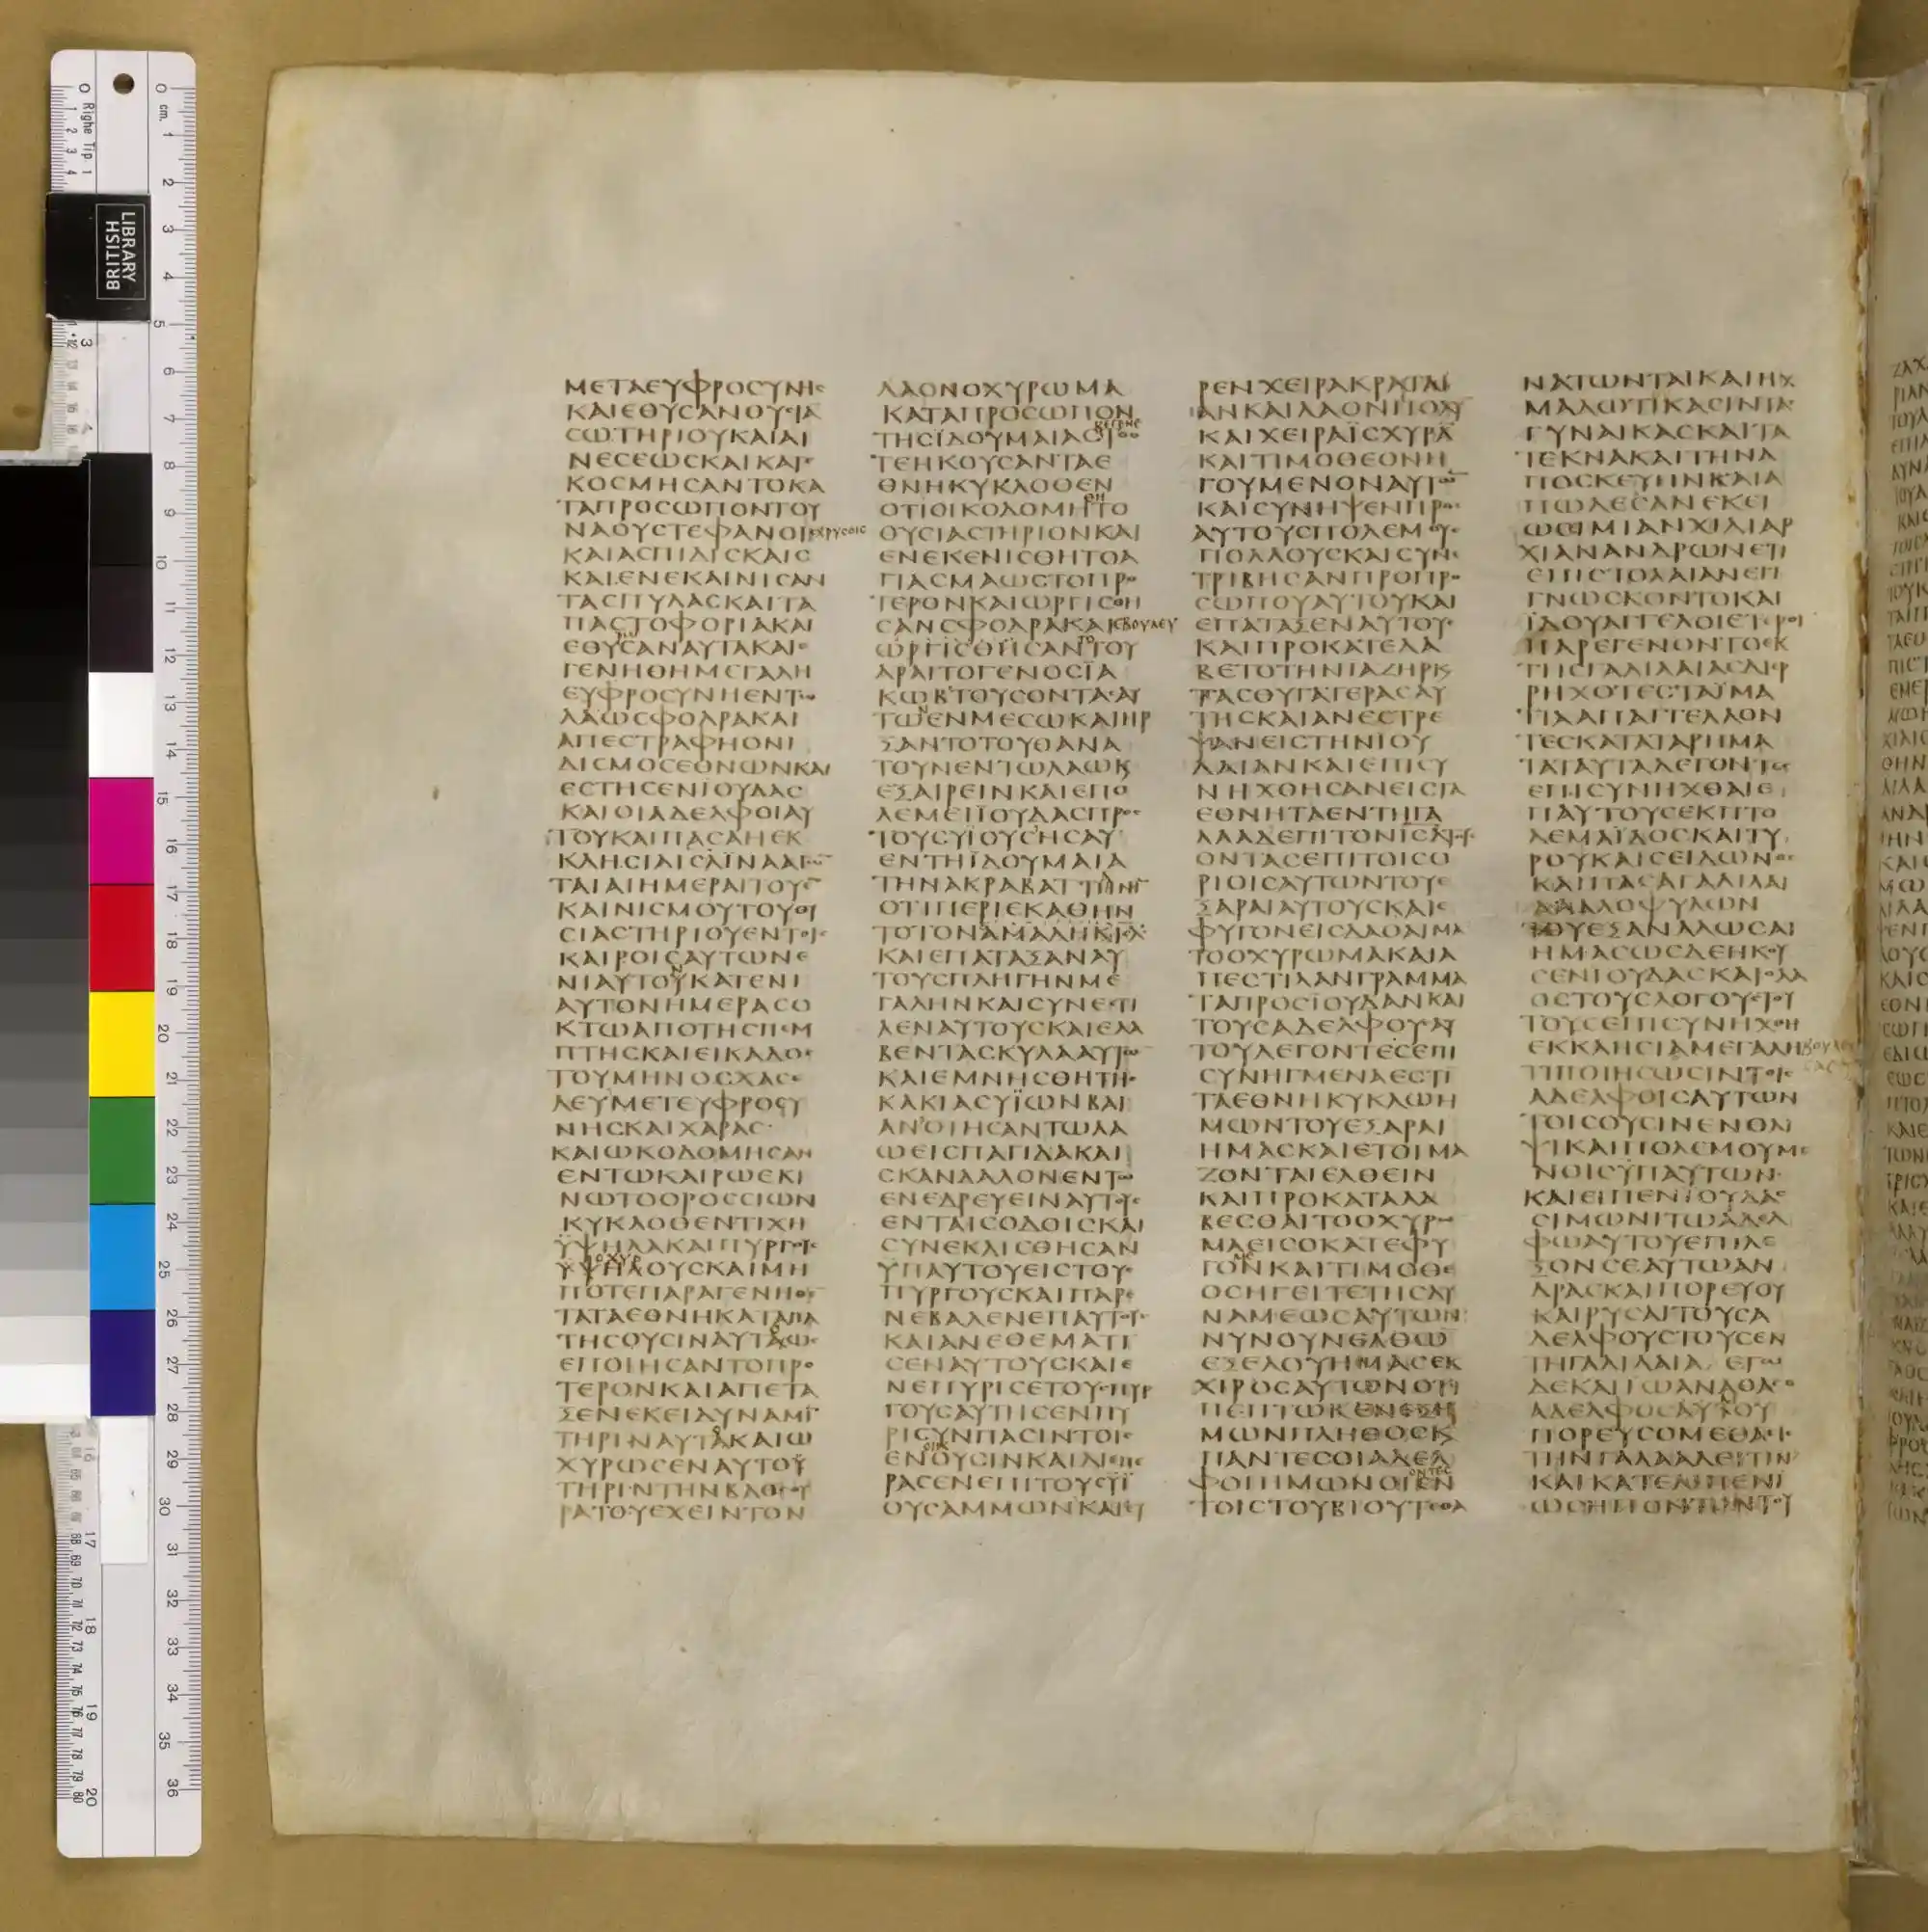 ΜΕΤΑΕΥΦΡΟCΥΝΗC
ΚΑΙΕΘΥCΑΝΘΥCΙΑ
CΩΤΗΡΙΟΥΚΑΙΑΙ
ΝΕCΕΩCΚΑΙΚΑΤ
ΚΟCΜΗCΑΝΤΟΚΑ
ΤΑΠΡΟCΩΠΟΝΤΟΥ
ΝΑΟΥCΤΕΦΑΝΟΙC ΧΡΥCΟΙC
ΚΑΙΑCΠΙΔΙCΚΑΙC
ΚΑΙΕΝΕΚΑΙΝΙCΑΝ
ΤΑCΠΥΛΑCΚΑΙΤΑ
ΠΑCΤΟΦΟΡΙΑΚΑΙ
ΕΘΥCΑΝΑΥΤΑΚΑΙ
ΓΕΝΗΘΗΜΕΓΑΛΗ
ΕΥΦΡΟCΥΝΗΕΝΤΩ
ΛΑΩCΦΟΔΡΑΚΑΙ
ΑΠΕCΤΡΑΦΗΟΝΙ
ΔΙCΜΟCΕΘΝΩΝΚΑΙ
ΕCΤΗCΕΝΙΟΥΔΑC
ΚΑΙΟΙΑΔΕΛΦΟΙΑΥ
ΤΟΥΚΑΙΠΑCΑΗΕΚ
ΚΛΗCΙΑΙCΛΪΝΑΑΓΩ
ΤΑΙΑΙΗΜΕΡΑΙΤΟΥΕΓ
ΚΑΙΝΙCΜΟΥΤΟΥΘΥ
CΙΑCΤΗΡΙΟΥΕΝΤΟΙC
ΚΑΙΡΟΙCΑΥΤΩΝΕ
ΝΙΑΥΤΟΥΚΑΤΕΝΙ
ΑΥΤΟΝΗΜΕΡΑCΟ
ΚΤΩΑΠΟΤΗCΠΕΜ
ΠΤΗCΚΑΙΕΙΚΑΔΟC
ΤΟΥΜΗΝΟCΧΑCΕ
ΛΕΥΜΕΤΕΥΦΡΟCΥ
ΝΗCΚΑΙΧΑΡΑC
ΚΑΙΩΚΟΔΟΜΗCΑΝ
ΕΝΤΩΚΑΙΡΩΕΚΙ
ΝΩΤΟΟΡΟCCΙΩΝ
ΚΥΚΛΟΘΕΝΤΙΧΗ
ΫΨΗΛΑΚΑΙΠΥΡΓΟΥC
ΟΧΥΡ
ΥΨΗΛΟΥCΚΑΙΜΗ
ΠΟΤΕΠΑΡΑΓΕΝΗΘΕ
ΤΑΤΑΕΘΝΗΚΑΤΑΠΑ
ΤΗCΟΥCΙΝΑΥΤΑΩC
ΕΠΟΙΗCΑΝΤΟΠΡΟ
ΤΕΡΟΝΚΑΙΑΠΕΤΑ
ΞΕΝΕΚΕΙΔΥΝΑΜΙ
ΤΗΡΙΝΑΥΤΑΚΑΙΩ
ΧΥΡΩCΕΝΑΥΤΟΫ
ΤΗΡΙΝΤΗΝΒΑΘCΟΥ
ΡΑΤΟΥΕΧΕΙΝΤΟΝ
ΛΑΟΝΟΧΥΡΩΜΑ
ΚΑΤΑΠΡΟCΩΠΟΝ
ΤΗCΪΔΟΥΜΑΙΑC
ΤΕΗΚΟΥCΑΝΤΑΕ
ΘΝΗΚΥΚΛΟΘΕΝ
ΟΤΙΟΙΚΟΔΟΜΗΤΟ
ΘΥCΙΑCΤΗΡΙΟΝΚΑΙ
ΕΝΕΚΕΝΙCΘΗΤΟΑ
ΓΙΑCΜΑΩCΤΟΠΡΟ
ΤΕΡΟΝΚΑΙΩΡΓΙCΘΗ
CΑΝCΦΟΔΡΑΚΑΙΕΒΟΥΛΕΥ
ΩΡΓΙCΘΗCΑΝΤΟΥ
ΑΡΑΙΤΟΓΕΝΟCΪΑ
ΚΩΒΤΟΥCΟΝΤΑCΑΥ
ΤΩΕΝΜΕCΩΚΑΙΗΡ
ΞΑΝΤΟΤΟΥΘΑΝΑ
ΤΟΥΝΕΝΤΩΛΑΩΚ
ΕΞΑΙΡΕΙΝΚΑΙΕΠΟ
ΛΕΜΕΙΪΟΥΔΑCΠΡΟC
ΤΟΥCΥΪΟΥCΗCΑΥ
ΕΝΤΗΪΔΟΥΜΑΙΑ
ΤΗΝΑΚΡΑΒΑΤΤΗΝΗ
ΟΤΙΠΕΡΙΕΚΑΘΗΝ
ΤΟΤΟΝΑΜΑΛΗΚ
ΚΑΙΕΠΑΤΑΞΑΝΑΥ
ΤΟΥCΠΛΗΓΗΝΜΕ
ΓΑΛΗΝΚΑΙCΥΝΕCΤΙ
ΛΕΝΑΥΤΟΥCΚΑΙΕΛΑ
ΒΕΝΤΑCΚΥΛΑΑΥΤΩ
ΚΑΙΕΜΝΗCΘΗΤΗC
ΚΑΚΙΑCΥΪΩΝΒΑΙ
ΑΝΟΙΗCΑΝΤΩΛΑ
ΩΕΙCΠΑΓΙΔΑΚΑΙ
CΚΑΝΔΑΛΟΝΕΝΤΩ
ΕΝΕΔΡΕΥΕΙΝΑΥΤΟΥC
ΕΝΤΑΙCΟΔΟΙCΚΑΙ
CΥΝΕΚΛΙCΘΗCΑΝ
ΥΠΑΥΤΟΥΕΙCΤΟΥC
ΠΥΡΓΟΥCΚΑΙΠΑΡΕ
ΝΕΒΑΛΕΝΕΠΑΥΤΟΥC
ΚΑΙΑΝΕΘΕΜΑΤΙ
CΕΝΑΥΤΟΥCΚΑΙΕ
ΝΕΠΥΡΙCΕΤΟΥCΠΥΡ
ΓΟΥCΑΥΤΗCΕΝΠΥ
ΡΙCΥΝΠΑCΙΝΤΟΙC
ΕΝΟΥCΙΝΚΑΙΔΙΕΠΕ
ΡΑCΕΝΕΠΙΤΟΥCΫΪ
ΟΥCΑΜΜΩΝΚΑΙΕΥ
ΡΕΝΧΕΙΡΑΚΡΑΤΑΙ
ΑΝΚΑΙΛΑΟΝΠΟΛΥ
ΚΑΙΧΕΙΡΑΪCΧΥΡΑ
ΚΑΙΤΙΜΟΘΕΟΝΗ
ΓΟΥΜΕΝΟΝΑΥΤΩ
ΚΑΙCΥΝΗΨΕΝΠΡΟC
ΑΥΤΟΥCΠΟΛΕΜΟΥC
ΠΟΛΛΟΥCΚΑΙCΥΝΕ
ΤΡΙΒΗCΑΝΠΡΟΠΡΟ
CΩΠΟΥΑΥΤΟΥΚΑΙ
ΕΠΑΤΑΞΕΝΑΥΤΟΥC
ΚΑΙΠΡΟΚΑΤΕΛΑ
ΒΕΤΟΤΗΝΙΑΖΗΡΚ
ΤΑCΘΥΓΑΤΕΡΑCΑΥ
ΤΗCΚΑΙΑΝΕCΤΡΕ
ΨΑΝΕΙCΤΗΝΙΟΥ
ΔΑΙΑΝΚΑΙΕΠΙCΥ
ΝΗΧΘΗCΑΝΕΙCΤΑ
ΕΘΝΗΤΑΕΝΤΗΓΑ
ΛΑΑΔΕΠΙΤΟΝΙCΛΗ
ΟΝΤΑCΕΠΙΤΟΙCΟ
ΡΙΟΙCΑΥΤΩΝΤΟΥΕ
ΞΑΡΑΙΑΥΤΟΥCΚΑΙΕ
ΦΥΓΟΝΕΙCΔΑΘΑΙΜΑ
ΤΟΟΧΥΡΩΜΑΚΑΙΑ
ΠΕCΤΙΛΑΝΓΡΑΜΜΑ
ΤΑΠΡΟCΪΟΥΔΑΝΚΑΙ
ΤΟΥCΑΔΕΛΦΟΥCΑΥ
ΤΟΥΛΕΓΟΝΤΕCΕΠΙ
CΥΝΗΓΜΕΝΑΕCΤΙ
ΤΑΕΘΝΗΚΥΚΛΩΗ
ΜΩΝΤΟΥΕΞΑΡΑΙ
ΗΜΑCΚΑΙΕΤΟΙΜΑ
ΖΟΝΤΑΙΕΛΘΕΙΝ
ΚΑΙΠΡΟΚΑΤΑΛΑ
ΒΕCΘΑΙΤΟΟΧΥΡΩ
ΜΑΕΙCΟΚΑΤΕΦΥ
ΓΟΝΚΑΙΤΙΜΟΘΕ
ΟCΗΓΕΙΤΕΤΗCΔΥ
ΝΑΜΕΩCΑΥΤΩΝ
ΝΥΝΟΥΝΕΛΘΩ
ΕΞΕΛΟΥΗΜΑCΕΚ
ΧΙΡΟCΑΥΤΩΝΟΤΙ
ΠΕΠΤΩΚΕΝΕΞΗ
ΜΩΝΠΛΗΘΟCΚ
ΠΑΝΤΕCΟΙΑΔΕΛ
ΦΟΙΗΜΩΝΟΙΕΝ
ΤΟΙCΤΟΥΒΙΟΥΤΕΘΑ
ΝΑΤΩΝΤΑΙΚΑΙΗΧ
ΜΑΛΩΤΙΚΑCΙΝΤΑC
ΓΥΝΑΙΚΑCΚΑΙΤΑ
ΤΕΚΝΑΚΑΙΤΗΝΑ
ΠΟCΚΕΥΗΝΚΑΙΑ
ΠΩΛΕCΑΝΕΚΕΙ
ΩCΙΜΙΑΝΧΙΛΙΑΡ
ΧΙΑΝΑΝΔΡΩΝΕΤΙ
ΕΠΙCΤΟΛΑΙΑΝΕΓΙ
ΓΝΩCΚΟΝΤΟΚΑΙ
ΪΔΟΥΑΓΓΕΛΟΙΕΤΕΡΟΙ
ΠΑΡΕΓΕΝΟΝΤΟΕΚ
ΤΗCΓΑΛΙΛΑΙΑCΔΙΕΡ
ΡΗΧΟΤΕCΤΑΪΜΑ
ΤΙΑΑΠΑΓΓΕΛΛΟΝ
ΤΕCΚΑΤΑΤΑΡΗΜΑ
ΤΑΤΑΥΤΑΛΕΓΟΝΤΕC
ΕΠΙCΥΝΗΧΘΑΙΕ
ΠΑΥΤΟΥCΕΚΠΤΟ
ΛΕΜΑΪΔΟCΚΑΙΤΥ
ΡΟΥΚΑΙCΕΙΔΩΝΟC
ΚΑΙΠΑCΑΓΑΛΙΛΑΙ
ΑΛΛΟΦΥΛΩΝ
ΤΟΥΕΞΑΝΑΛΩCΑΙ
ΗΜΑCΩCΔΕΗΚΟΥ
CΕΝΙΟΥΔΑCΚΑΙΟΛΑ
ΟCΤΟΥCΛΟΓΟΥCΤΟΥ
ΤΟΥCΕΠΙCΥΝΗΧΘΗ
ΕΚΚΛΗCΙΑΜΕΓΑΛΗ
ΤΙΠΟΙΗCΩCΙΝΤΟΙC
ΑΔΕΛΦΟΙCΑΥΤΩΝ
ΤΟΙCΟΥCΙΝΕΝΘΛΙ
ΨΙΚΑΙΠΟΛΕΜΟΥΜΕ
ΝΟΙCΫΠΑΥΤΩΝ
ΚΑΙΕΙΠΕΝΙΟΥΔΑC
CΙΜΩΝΙΤΩΑΔΕΛ
ΦΩΑΥΤΟΥΕΠΙΛΕ
ΞΟΝCΕΑΥΤΩΑΝ
ΔΡΑCΚΑΙΠΟΡΕΥΟΥ
ΚΑΙΡΥCΑΙΤΟΥCΑ
ΔΕΛΦΟΥCΤΟΥCΕΝ
ΤΗΓΑΛΙΛΑΙΑΕΓΩ
ΔΕΚΑΙΪΩΑΝΑΘΑC
ΑΔΕΛΦΟCΑΥΤΟΥ
ΠΟΡΕΥCΟΜΕΘΑΕΙC
ΤΗΝΓΑΛΑΑΔΕΙΤΙΝ
ΚΑΙΚΑΤΕΛΙΠΕΝΙ
ΩCΗΠΟΝΤΟΝΤΟΥ
LIBRARY
BRITISH
Righe Tip. 1
cm.